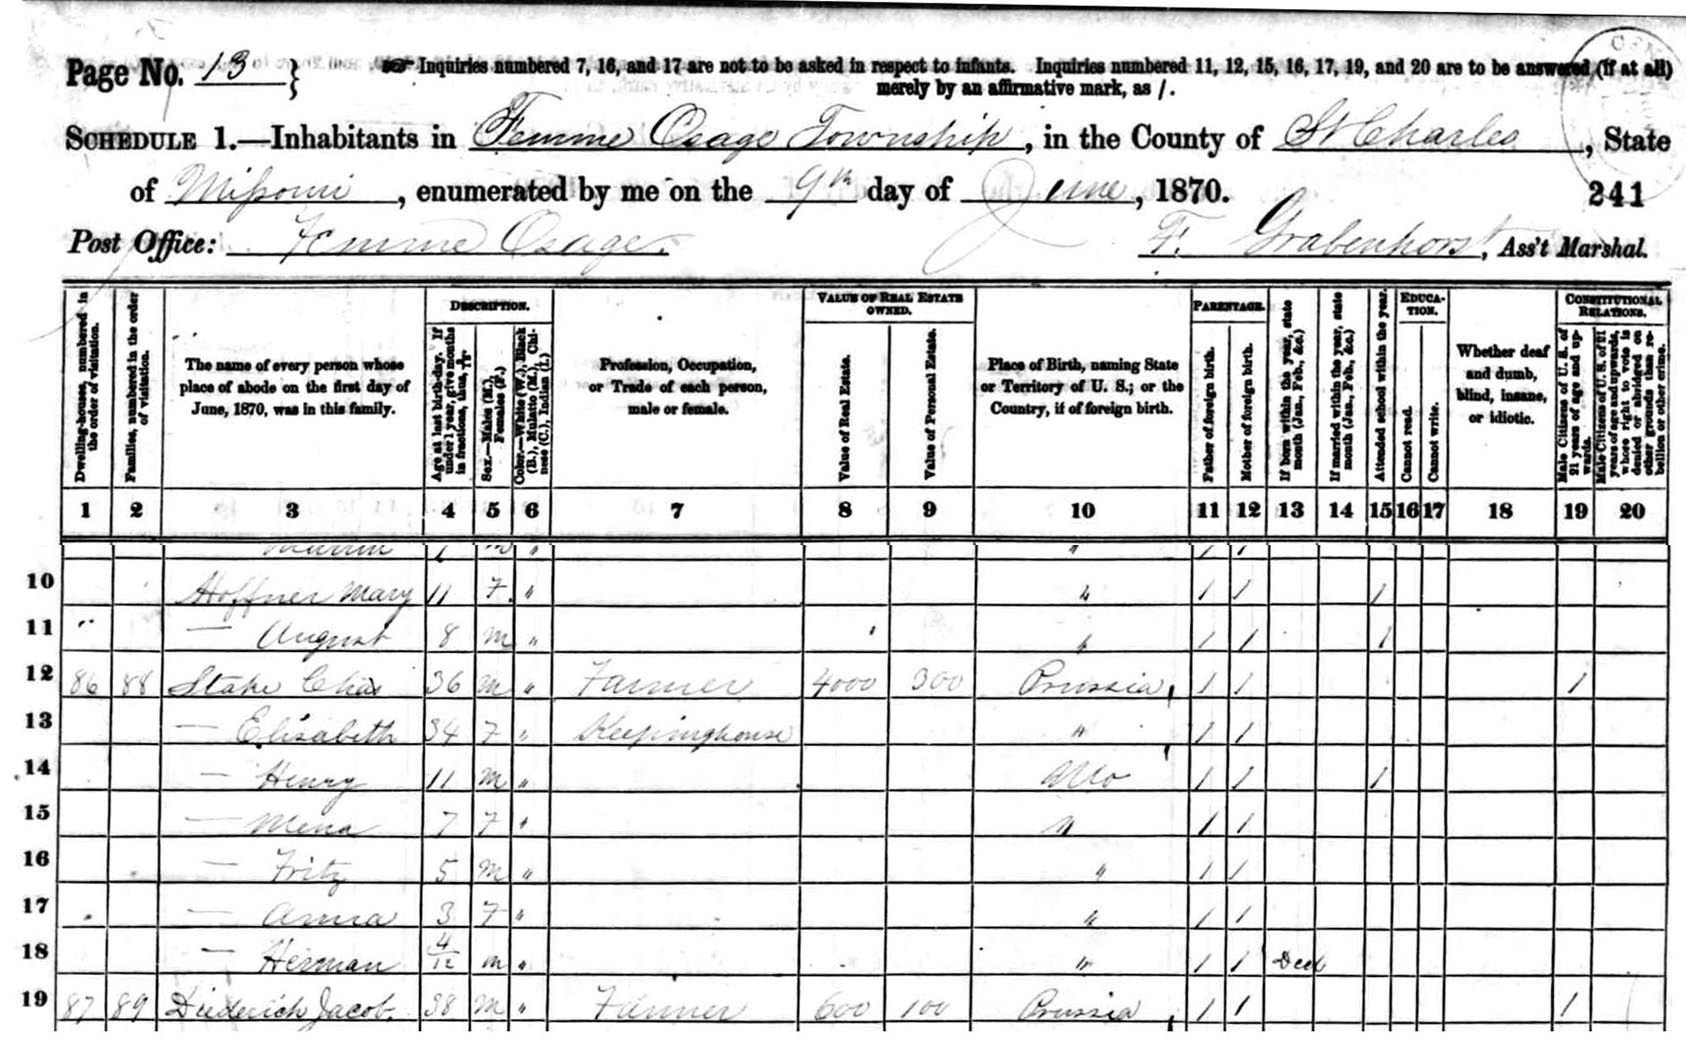 Page No. 13 } Inquiries numbered 7, 16, and 17 are not to be asked in respect to infants. Inquiries numbered 11, 12, 15, 16, 17, 19, and 20 are to be answered (if at all)
merely by an affirmative mark, as /.
SCHEDULE 1.—Inhabitants in Femme Osage Township, in the County of St Charles, State
of Missouri, enumerated by me on the 9th day of June, 1870. 241
Post Office: Femme Osage. F. Grabenhorst, Ass't Marshal.
Dwelling-houses, numbered in the order of visitation.
Families, numbered in the order of visitation.
The name of every person whose place of abode on the first day of June, 1870, was in this family.
DESCRIPTION.
Age at last birth-day. If under 1 year, give months in fractions, thus, 3/12.
Sex.—Males (M.), Females (F.)
Color.—White (W.), Black (B.), Mulatto (M.), Chinese (C.), Indian (I.)
Profession, Occupation, or Trade of each person, male or female.
VALUE OF REAL ESTATE OWNED.
Value of Real Estate.
Value of Personal Estate.
Place of Birth, naming State or Territory of U. S.; or the Country, if of foreign birth.
PARENTAGE.
Father of foreign birth.
Mother of foreign birth.
If born within the year, state month (Jan., Feb., &c.)
If married within the year, state month (Jan., Feb., &c.)
Attended school within the year.
EDUCATION.
Cannot read.
Cannot write.
Whether deaf and dumb, blind, insane, or idiotic.
CONSTITUTIONAL RELATIONS.
Male Citizens of U. S. of 21 years of age and upwards.
Male Citizens of U. S. of 21 years of age and upwards, whose right to vote is denied or abridged on other grounds than rebellion or other crime.
1 2 3 4 5 6 7 8 9 10 11 12 13 14 15 16 17 18 19 20
10 Hoffner Mary 11 F. " " / / /
11 " — August 8 M " " / / /
12 86 88 Stake Chas 36 M " Farmer 4000 300 Prussia / / /
13 — Elisabeth 34 F " Keepinghouse " / /
14 — Henry 11 M " Mo / / /
15 — Mena 7 F " " / /
16 — Fritz 5 M " " / /
17 — Anna 3 F " " / /
18 — Herman 4/12 M " " / / Dec
19 87 89 Diederich Jacob. 38 M " Farmer 600 100 Prussia / / /